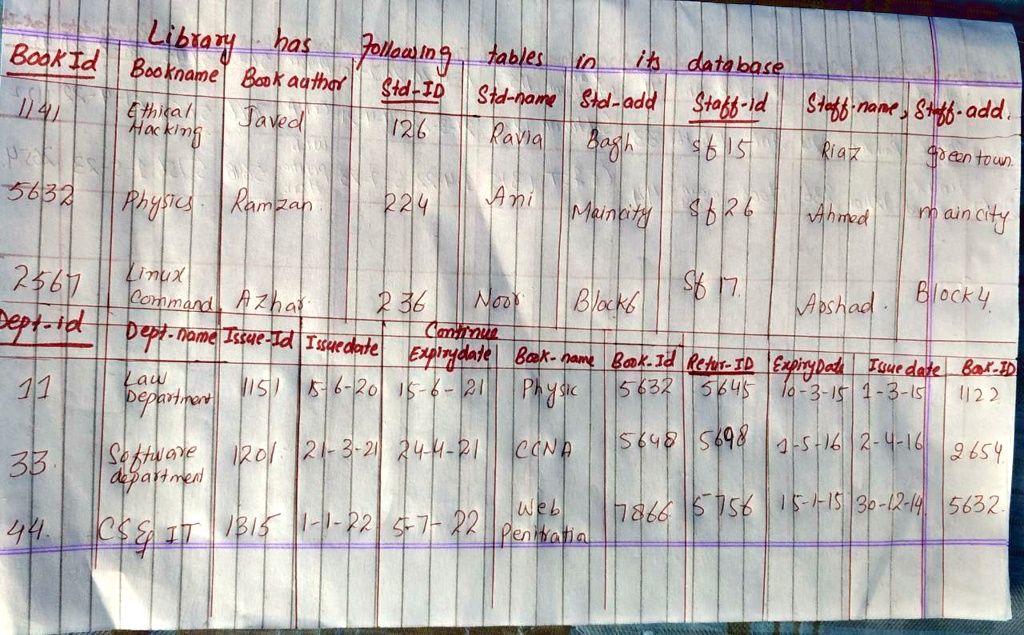 Library has following tables in its database
Book Id Bookname Book author Std-ID Std-name Std-add Staff-id Staff-name, Staff-add.
1141 Ethical Hacking Javed 126 Ravia Bagh Sf 15 Riaz green town
5632 Physics Ramzan 224 Ani Maincity Sf 26 Ahmed maincity
2567 Linux Command Azhar 236 Noor Block6 Sf 17 Block 4.
Continue
Dept-id Dept-name Issue-Id Issuedate Expirydate Book-name Book-Id Retur-ID ExpiryDate Issue date Book-ID
11 Law Department 1151 15-6-21 Physic 5632 5645 10-3-15 1-3-15 1122
33. Software department 1201 21-3-21 24-4-21 CCNA 5648 5698 1-5-16 2-4-16 2654
44. CS & IT 1315 1-1-22 5-7-22 Web Penitratia 7866 5756 15-1-15 30-12-14 5632